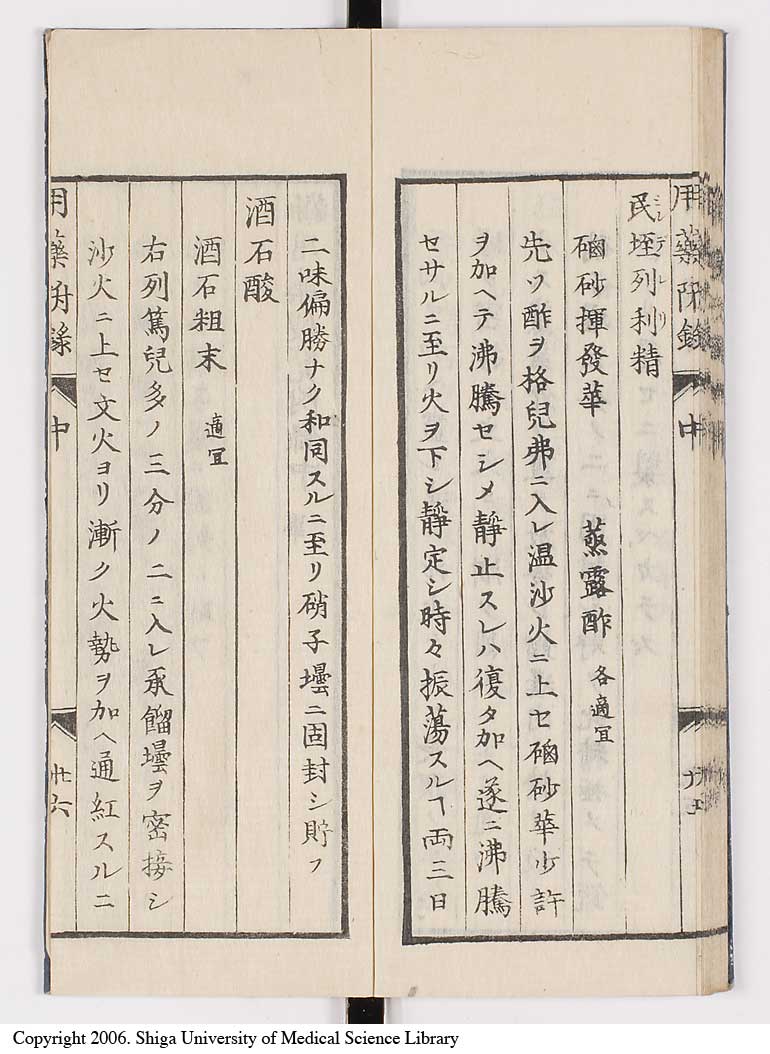 用藥附錄 中
民垤列利精
ミンデレリ
磠砂揮發華 蒸露酢 各適宜
先ツ酢ヲ格兒弗ニ入レ温沙火ニ上セ磠砂華少許
ヲ加ヘテ沸騰セシメ靜止スレハ復タ加ヘ遂ニ沸騰
セサルニ至リ火ヲ下シ靜定シ時々振蕩スルヿ両三日
二味偏勝ナク和同スルニ至リ硝子壜ニ固封シ貯フ
酒石酸
酒石粗末 適宜
右列篤兒多ノ三分ノ二ニ入レ承餾壜ヲ密接シ
沙火ニ上セ文火ヨリ漸ク火勢ヲ加ヘ通紅スルニ
用藥附錄 中 廿六
Copyright 2006. Shiga University of Medical Science Library